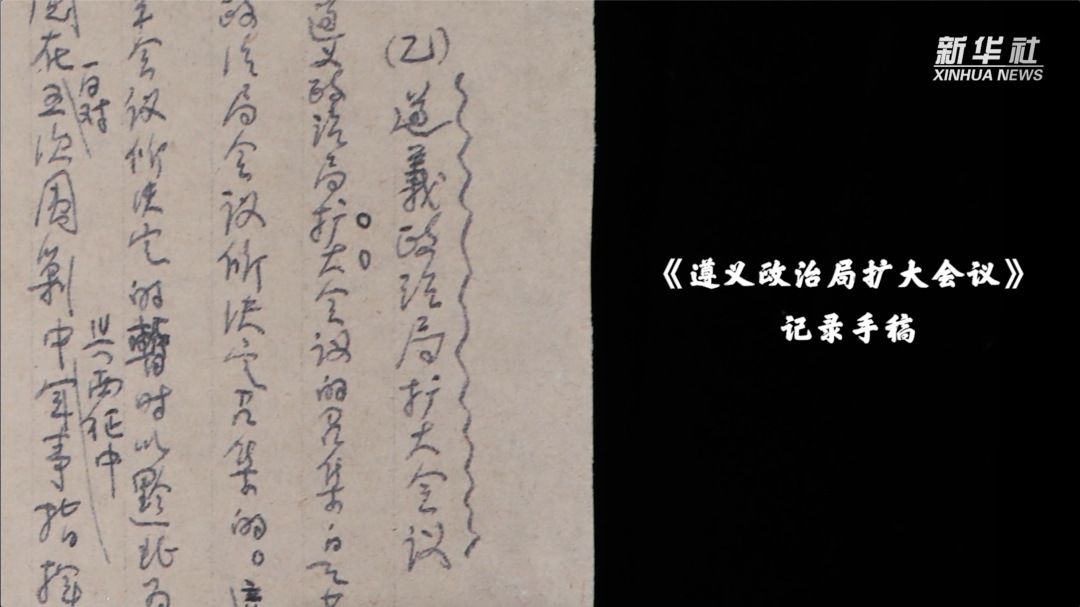 (乙)遵義政治局扩大会议
遵义政治局扩大会议的召集
政治局会议所决定召集的。這
平会议所决定的暂时以黔北为
与西征中
在五次围剿中军事指挥
新华社
XINHUA NEWS
《遵义政治局扩大会议》
记录手稿